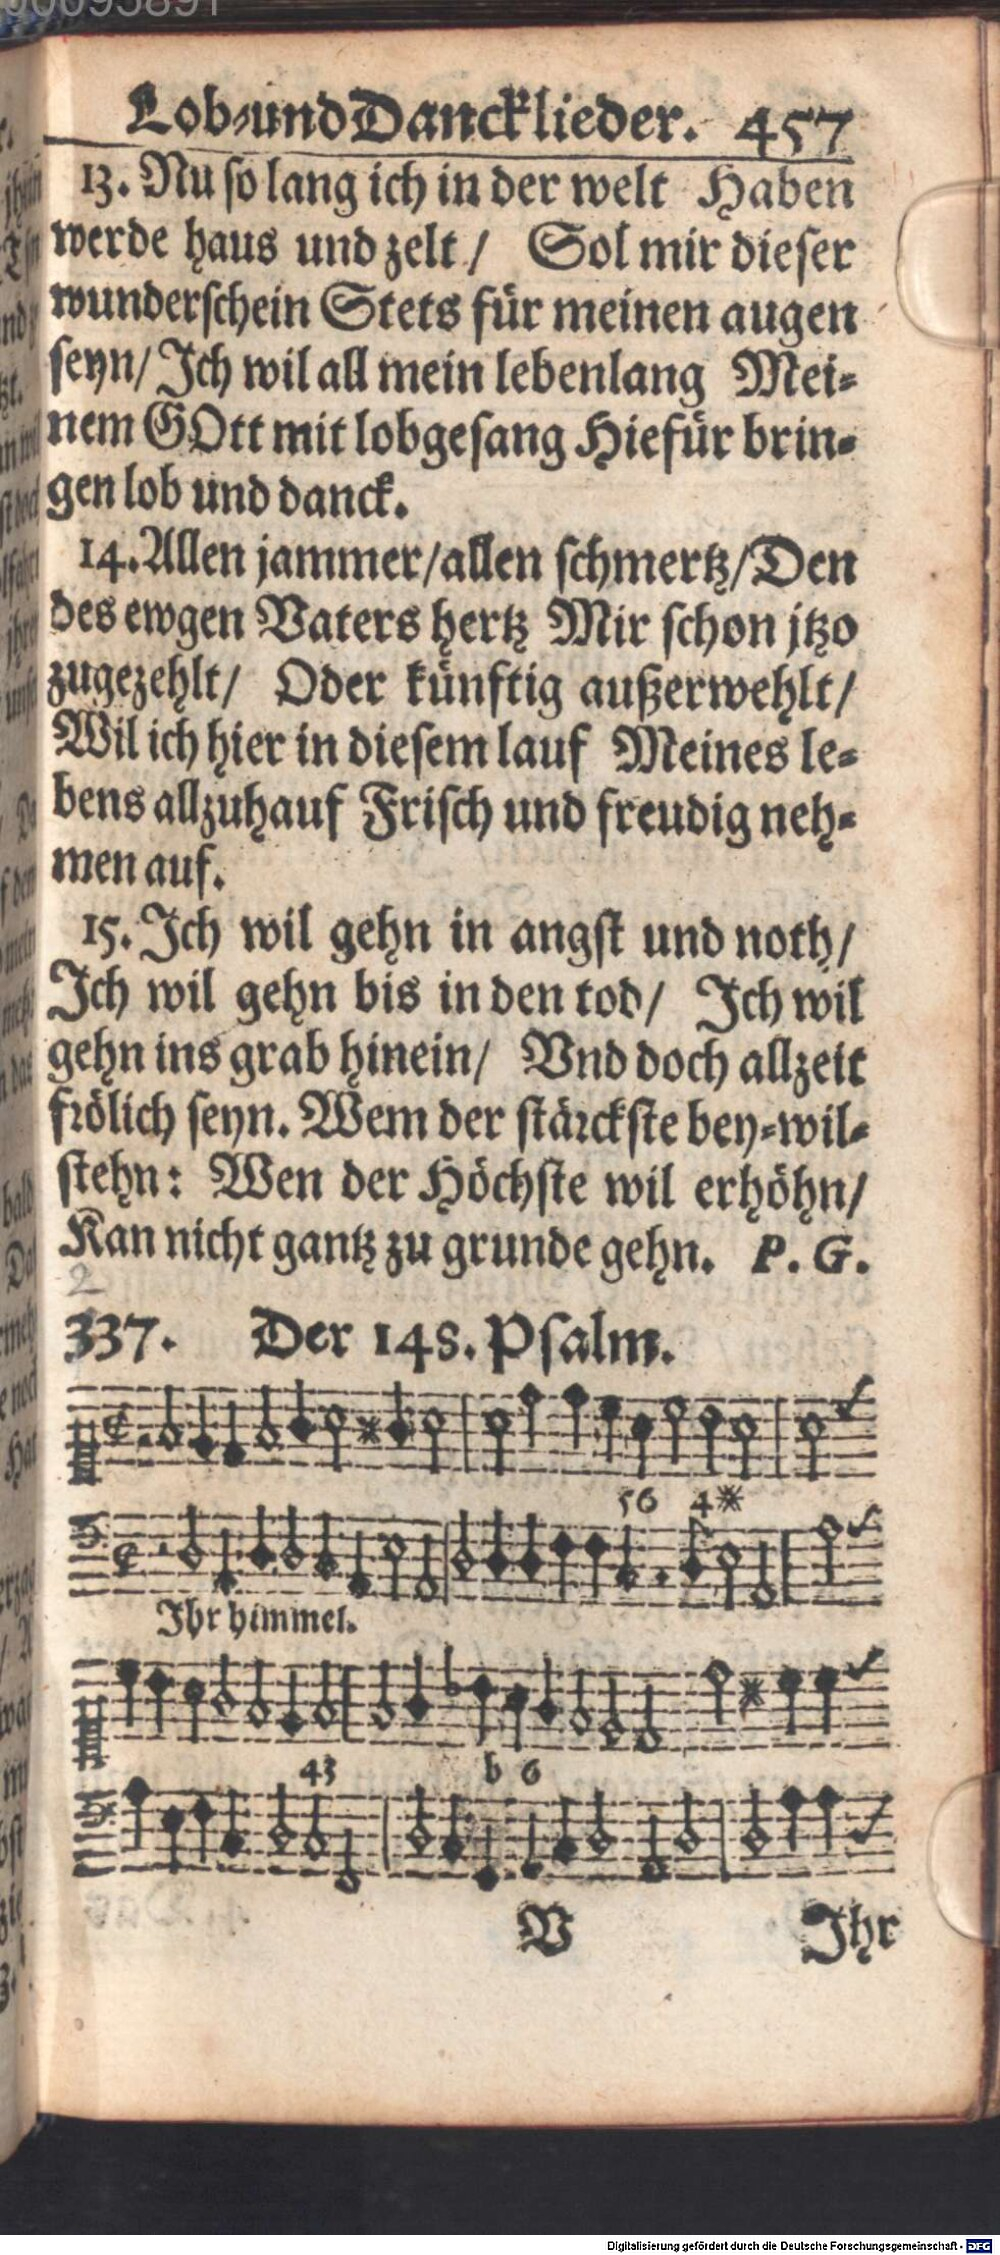 00095891
Lob-und Dancklieder. 457
13. Nu so lang ich in der welt Haben
werde haus und zelt / Sol mir dieser
wunderschein Stets für meinen augen
seyn / Ich wil all mein lebenlang Mei-
nem GOtt mit lobgesang Hiefür brin-
gen lob und danck.
14. Allen jammer / allen schmertz / Den
des ewgen Vaters hertz Mir schon jtzo
zugezehlt / Oder künftig außerwehlt /
Wil ich hier in diesem lauf Meines le-
bens allzuhauf Frisch und freudig neh-
men auf.
15. Ich wil gehn in angst und noth /
Ich wil gehn bis in den tod / Ich wil
gehn ins grab hinein / Vnd doch allzeit
frölich seyn. Wem der stärckste bey-wil-
stehn: Wen der Höchste wil erhöhn /
Kan nicht gantz zu grunde gehn. P. G.
2
337. Der 148. Psalm.
56 4*
Ihr himmel.
43 b 6
V Ihr
Digitalisierung gefördert durch die Deutsche Forschungsgemeinschaft - DFG